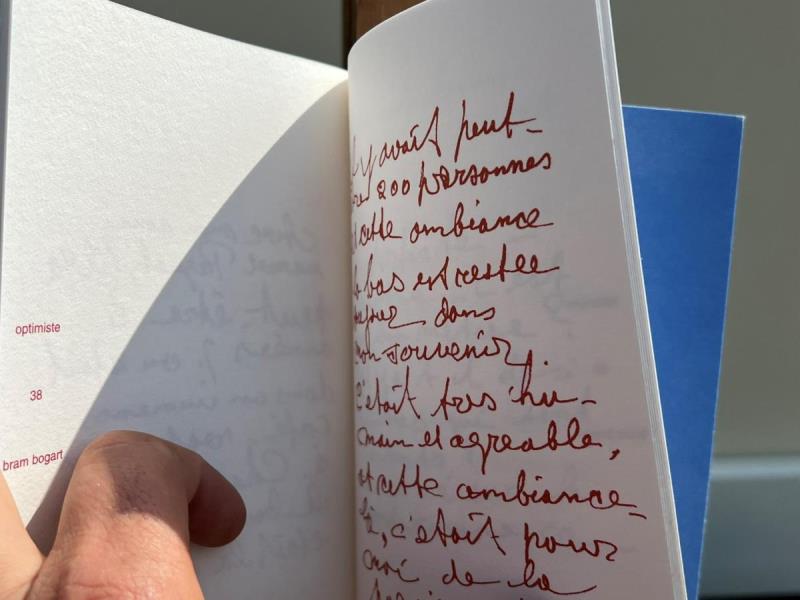 optimiste
38
bram bogart
y avait peut-
200 personnes
cette ambiance
bas est restee
dans
mon souvenir.
C'etait tres hu-
main et agreable,
et cette ambiance-
là, c'etait pour
moi de la